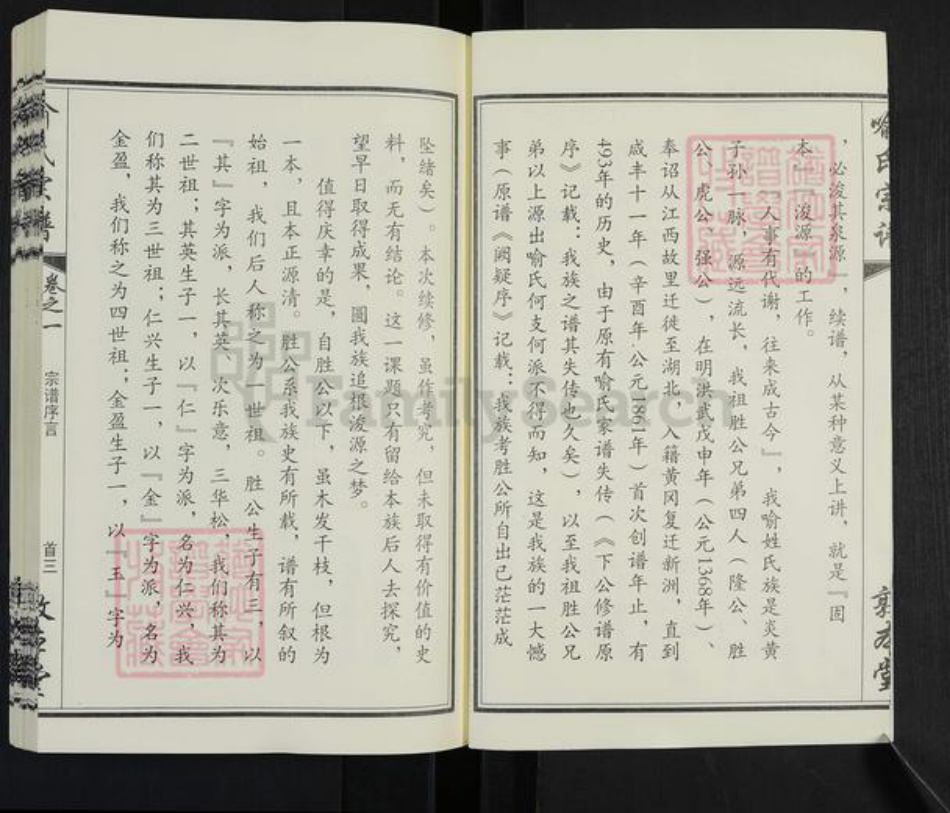 喻氏宗谱
敦本堂
，必浚其泉源』，续谱，从某种意义上讲，就是『固
本』『浚源』的工作。
『人事有代谢，往来成古今』，我喻姓氏族是炎黄
子孙一脉，源远流长，我祖胜公兄弟四人（隆公、胜
公、虎公、强公），在明洪武戊申年（公元1368年）、
奉诏从江西故里迁徙至湖北，入籍黄冈复迁新洲，直到
咸丰十一年（辛酉年·公元1861年）首次创谱年止，有
493年的历史，由于原有喻氏家谱失传（《下公修谱原
序》记载：我族之谱其失传也久矣），以至我祖胜公兄
弟以上源出喻氏何支何派不得而知，这是我族的一大憾
事（原谱《阙疑序》记载：我族考胜公所自出已茫茫成
坠绪矣）。本次续修，虽作考究，但未取得有价值的史
料，而无有结论。这一课题只有留给本族后人去探究，
望早日取得成果，圆我族追根浚源之梦。
值得庆幸的是，自胜公以下，虽木发千枝，但根为
一本，且本正源清。胜公系我族史有所载，谱有所叙的
始祖，我们后人称之为一世祖。胜公生子有三，以
『其』字为派，长其英、次乐意，三华松，我们称其为
二世祖；其英生子一，以『仁』字为派，名为仁兴，我
们称其为三世祖；仁兴生子一，以『金』字为派，名为
金盈，我们称之为四世祖；金盈生子一，以『玉』字为
卷之一
宗谱序言
首三
FamilySearch